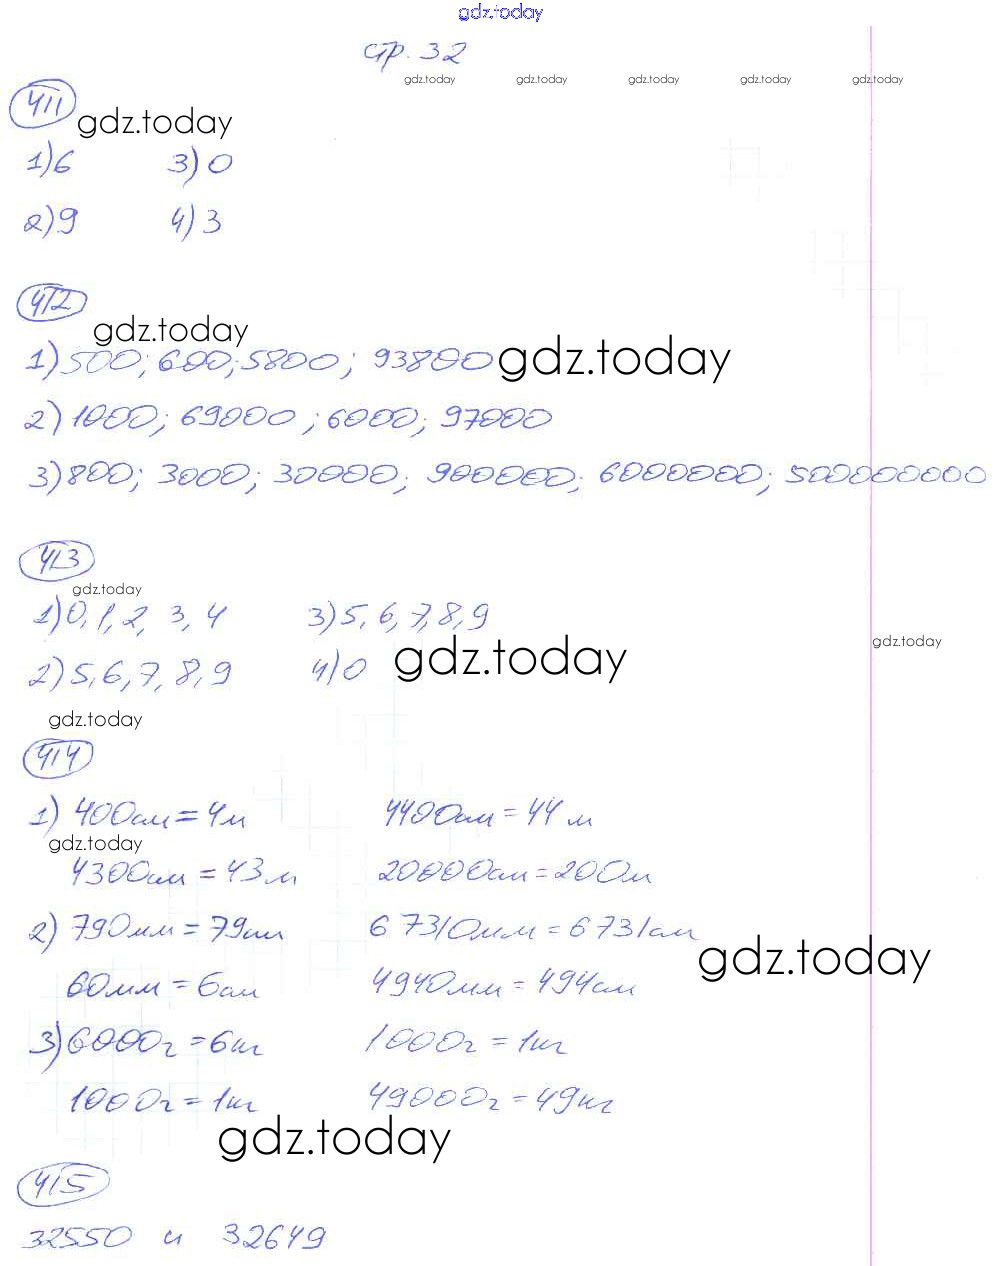 gdz.today
стр. 32
gdz.today gdz.today gdz.today gdz.today gdz.today
411
gdz.today
1) 6 3) 0
2) 9 4) 3
412
gdz.today
1) 500; 600; 5800; 93800 gdz.today
2) 1000; 69000; 6000; 97000
3) 800; 3000; 30000; 900000; 6000000; 500000000
413
gdz.today
1) 0, 1, 2, 3, 4 3) 5, 6, 7, 8, 9
gdz.today
2) 5, 6, 7, 8, 9 4) 0 gdz.today
gdz.today
414
1) 400см = 4м 4400см = 44м
gdz.today
4300см = 43м 20000см = 200м
2) 790мм = 79см 6 7310мм = 6 731см
gdz.today
60мм = 6см 4940мм = 494см
3) 6000г = 6кг 1000г = 1кг
1000г = 1кг 49000г = 49кг
gdz.today
415
32550 и 32649